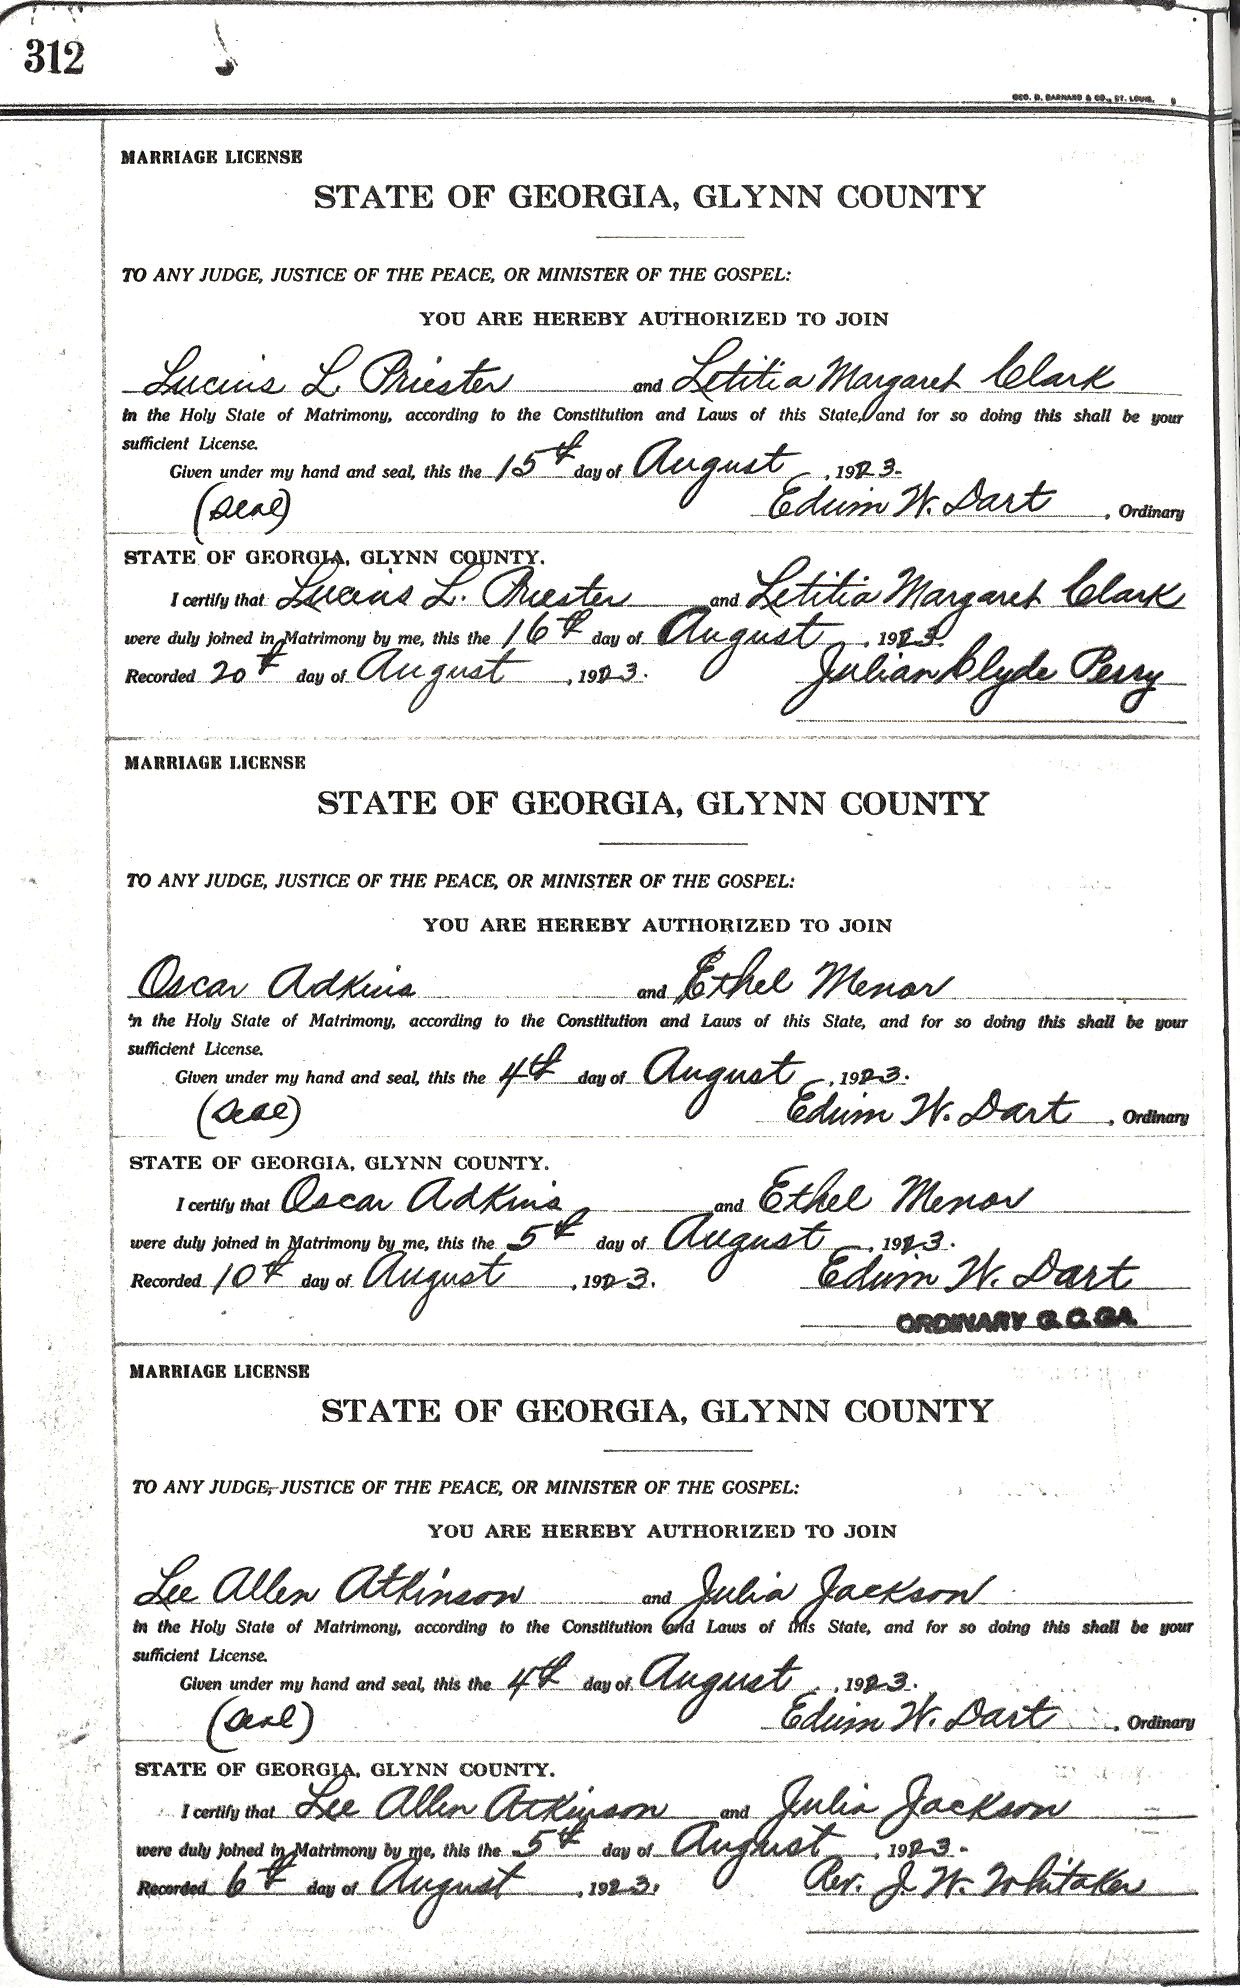 312
GEO. D. BARNARD & CO., ST. LOUIS.
MARRIAGE LICENSE
STATE OF GEORGIA, GLYNN COUNTY
TO ANY JUDGE, JUSTICE OF THE PEACE, OR MINISTER OF THE GOSPEL:
YOU ARE HEREBY AUTHORIZED TO JOIN
Lucius L. Priester and Letitia Margaret Clark
in the Holy State of Matrimony, according to the Constitution and Laws of this State, and for so doing this shall be your
sufficient License.
Given under my hand and seal, this the 15th day of August, 1923.
(seal) Edwin W. Dart, Ordinary
STATE OF GEORGIA, GLYNN COUNTY.
I certify that Lucius L. Priester and Letitia Margaret Clark
were duly joined in Matrimony by me, this the 16th day of August, 1923.
Recorded 20th day of August, 1923. Julian Clyde Perry
MARRIAGE LICENSE
STATE OF GEORGIA, GLYNN COUNTY
TO ANY JUDGE, JUSTICE OF THE PEACE, OR MINISTER OF THE GOSPEL:
YOU ARE HEREBY AUTHORIZED TO JOIN
Oscar Adkins and Ethel Menor
in the Holy State of Matrimony, according to the Constitution and Laws of this State, and for so doing this shall be your
sufficient License.
Given under my hand and seal, this the 4th day of August, 1923.
(seal) Edwin W. Dart, Ordinary
STATE OF GEORGIA, GLYNN COUNTY.
I certify that Oscar Adkins and Ethel Menor
were duly joined in Matrimony by me, this the 5th day of August, 1923.
Recorded 10th day of August, 1923. Edwin W. Dart
ORDINARY G.C.GA.
MARRIAGE LICENSE
STATE OF GEORGIA, GLYNN COUNTY
TO ANY JUDGE, JUSTICE OF THE PEACE, OR MINISTER OF THE GOSPEL:
YOU ARE HEREBY AUTHORIZED TO JOIN
Lee Allen Atkinson and Julia Jackson
in the Holy State of Matrimony, according to the Constitution and Laws of this State, and for so doing this shall be your
sufficient License.
Given under my hand and seal, this the 4th day of August, 1923.
(seal) Edwin W. Dart, Ordinary
STATE OF GEORGIA, GLYNN COUNTY.
I certify that Lee Allen Atkinson and Julia Jackson
were duly joined in Matrimony by me, this the 5th day of August, 1923.
Recorded 6th day of August, 1923. Rev. J. W. Whitaker